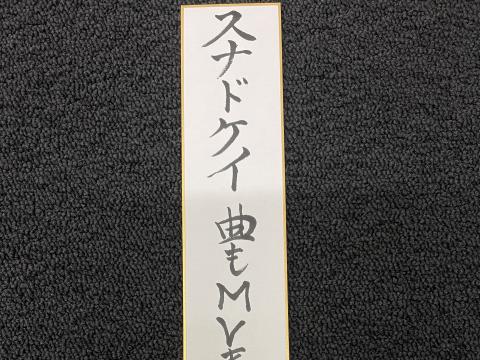 スナドケイ 曲もMV